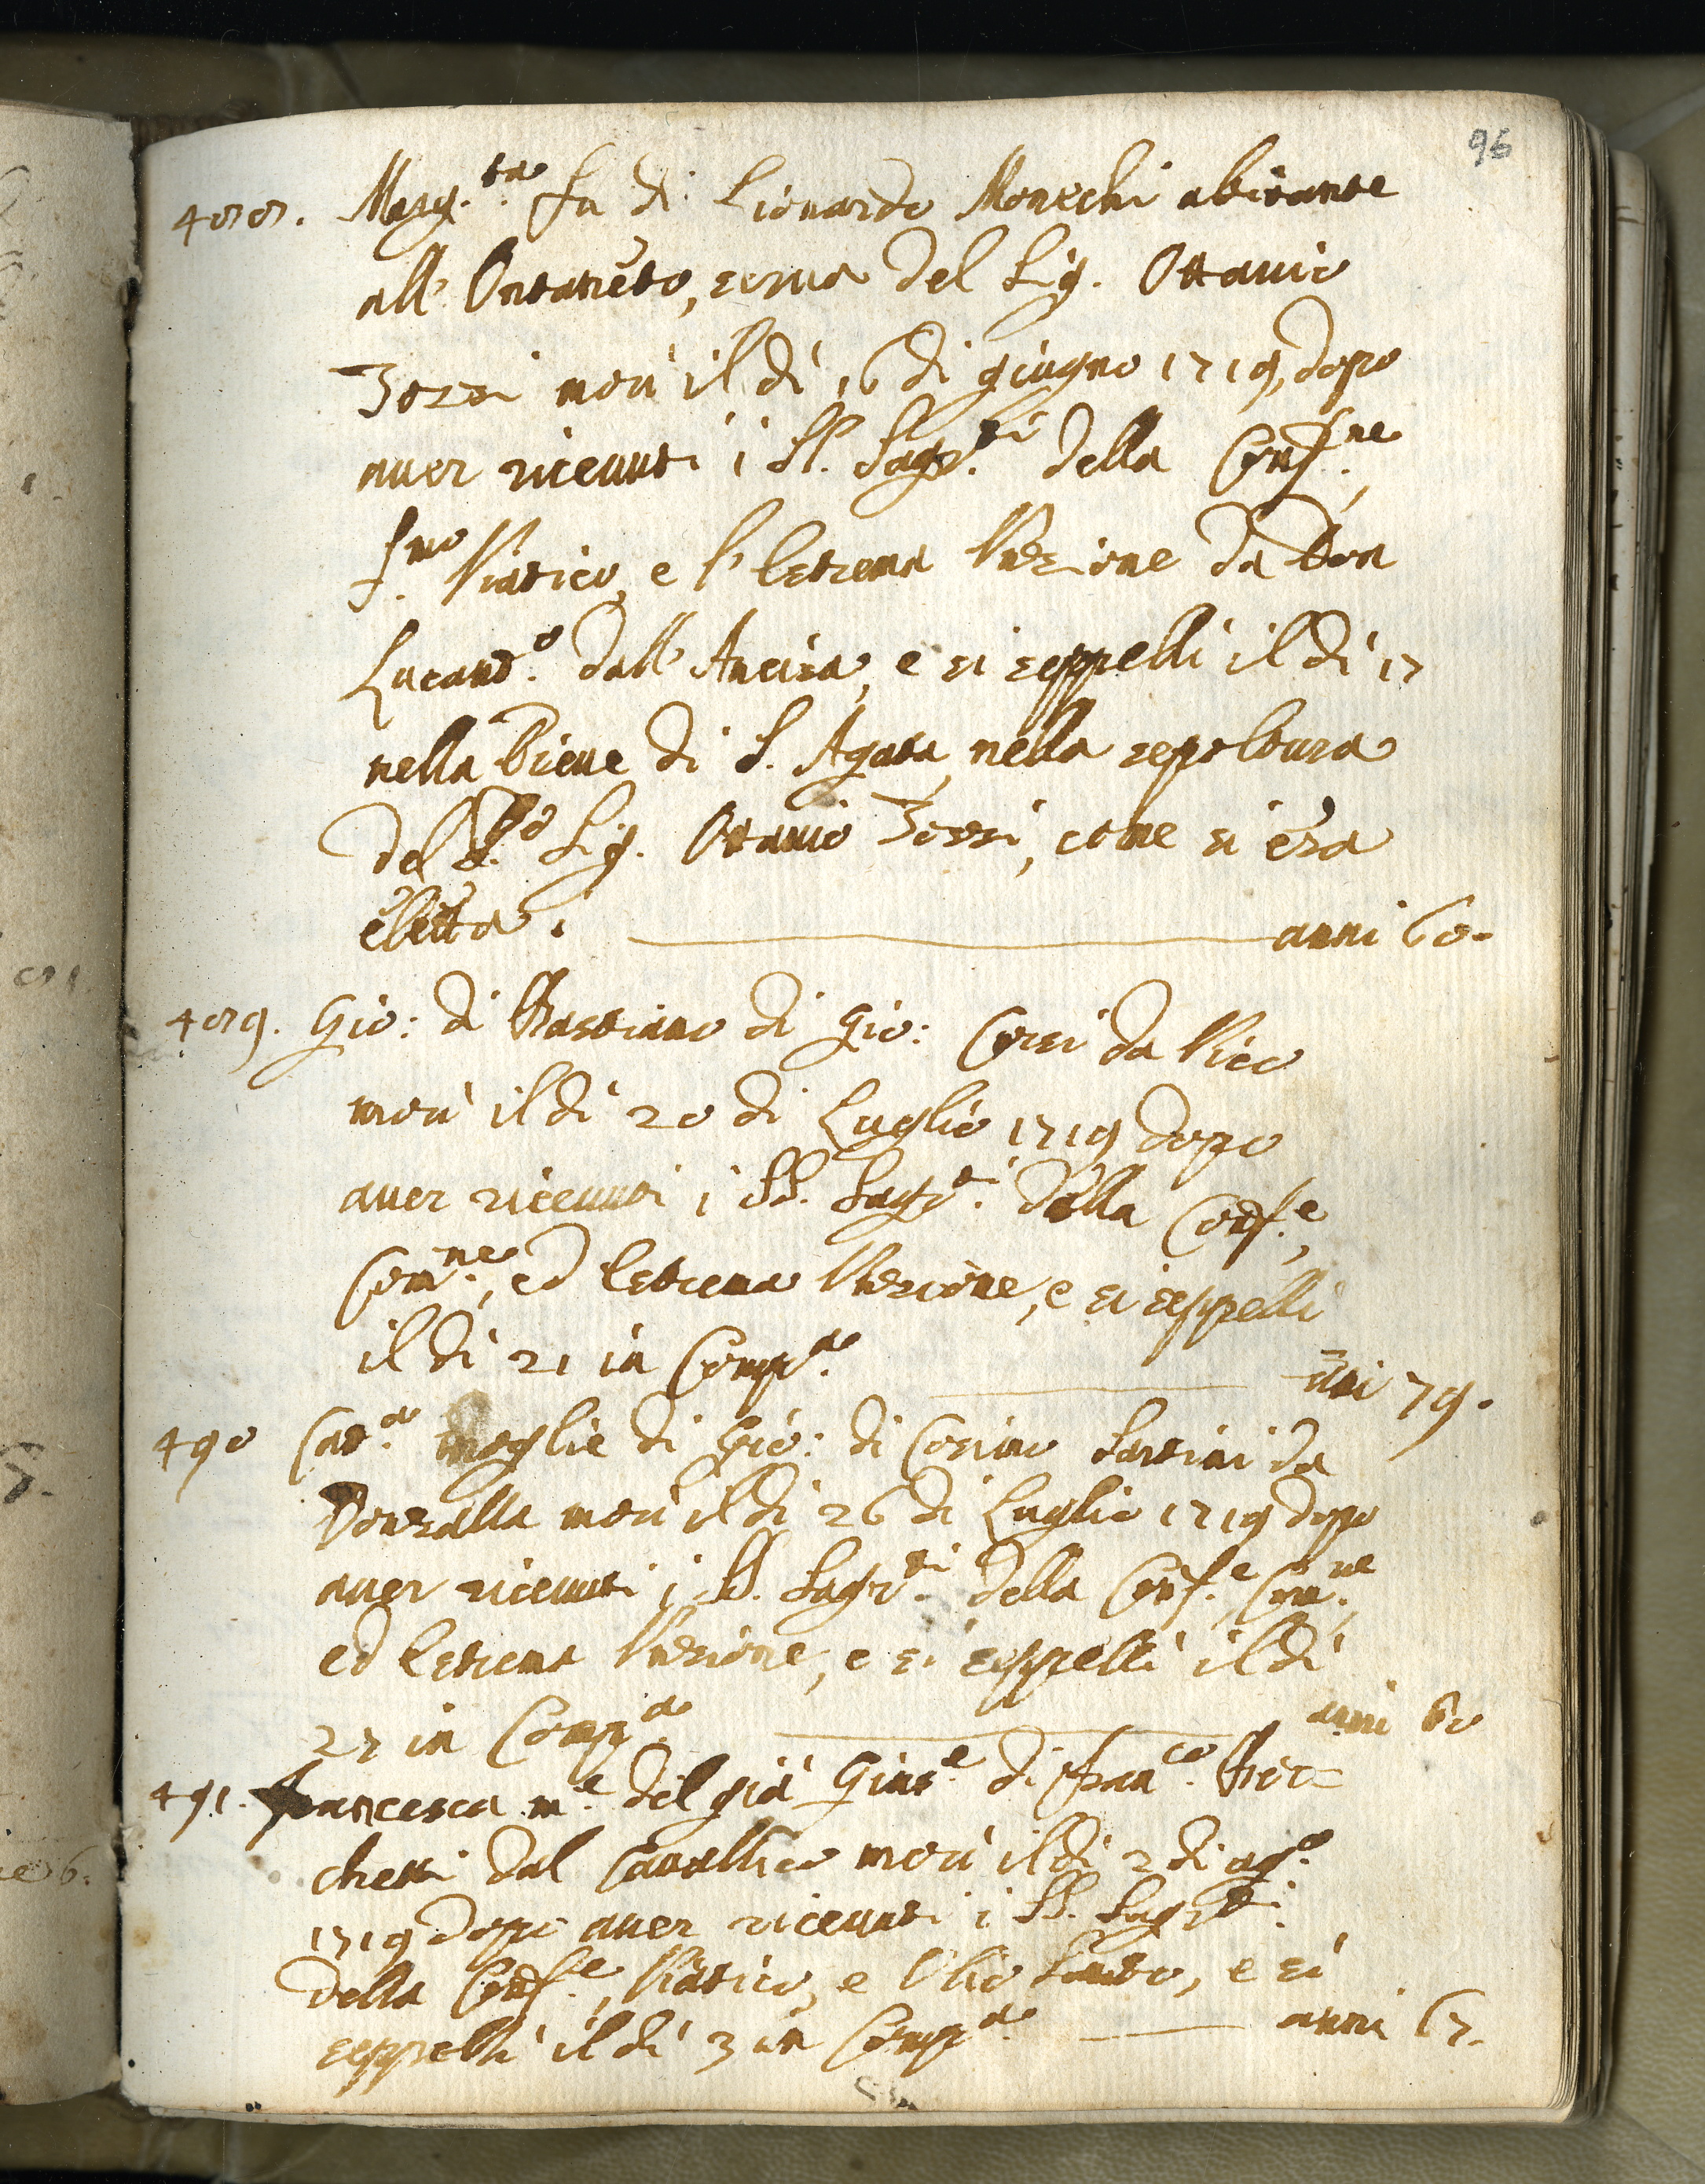 96
488. Marg.ta fu di Lionardo Monechi abitante
all' Ontaneto, serva del Sig. Ottavio
Tozzi morì il dì 16 di giugno 1719, dopo
aver ricevuti i SS. Sagr.ti della Conf.ne,
S.mo Viatico, e l'Estrema Unzione da Don
Lucand.o dall'Ancisa, e si seppellì il dì 17
nella Pieve di S. Agata, nella sepoltura
del d.o Sig. Ottavio Tozzi, come si era
eletta. anni 60.
489. Gio: di Bastiano di Gio: Corsi da Vico
morì il dì 20 di Luglio 1719 dopo
aver ricevuti i SS. Sagr.ti della Conf.e,
Com.ne, ed Estrema Unzione, e si seppellì
il dì 21 in Comp.a
anni 79.
490 Cat.a moglie di Gio: di Cosimo Santini da
Donzalla morì il dì 26 di Luglio 1719 dopo
aver ricevuti i SS. Sagr.ti della Conf.e, Com.ne,
ed Estrema Unzione, e si seppellì il dì
27 in Comp.a anni 60
491. Francesca m.e del già Gius.e di Fran.co Boc=
chetti dal Cavallico morì il dì 2 di ag.o
1719 dopo aver ricevuti i SS. Sagr.ti
della Conf.e, Viatico, e Olio Santo, e si
seppellì il dì 3 in Comp.a anni 67.